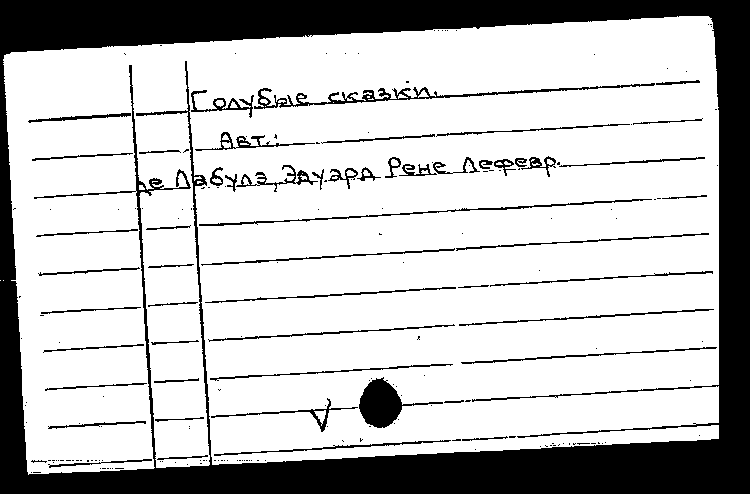 Голубые сказки.
Авт.:
де Лабулэ, Эдуард Рене Лефевр.
V